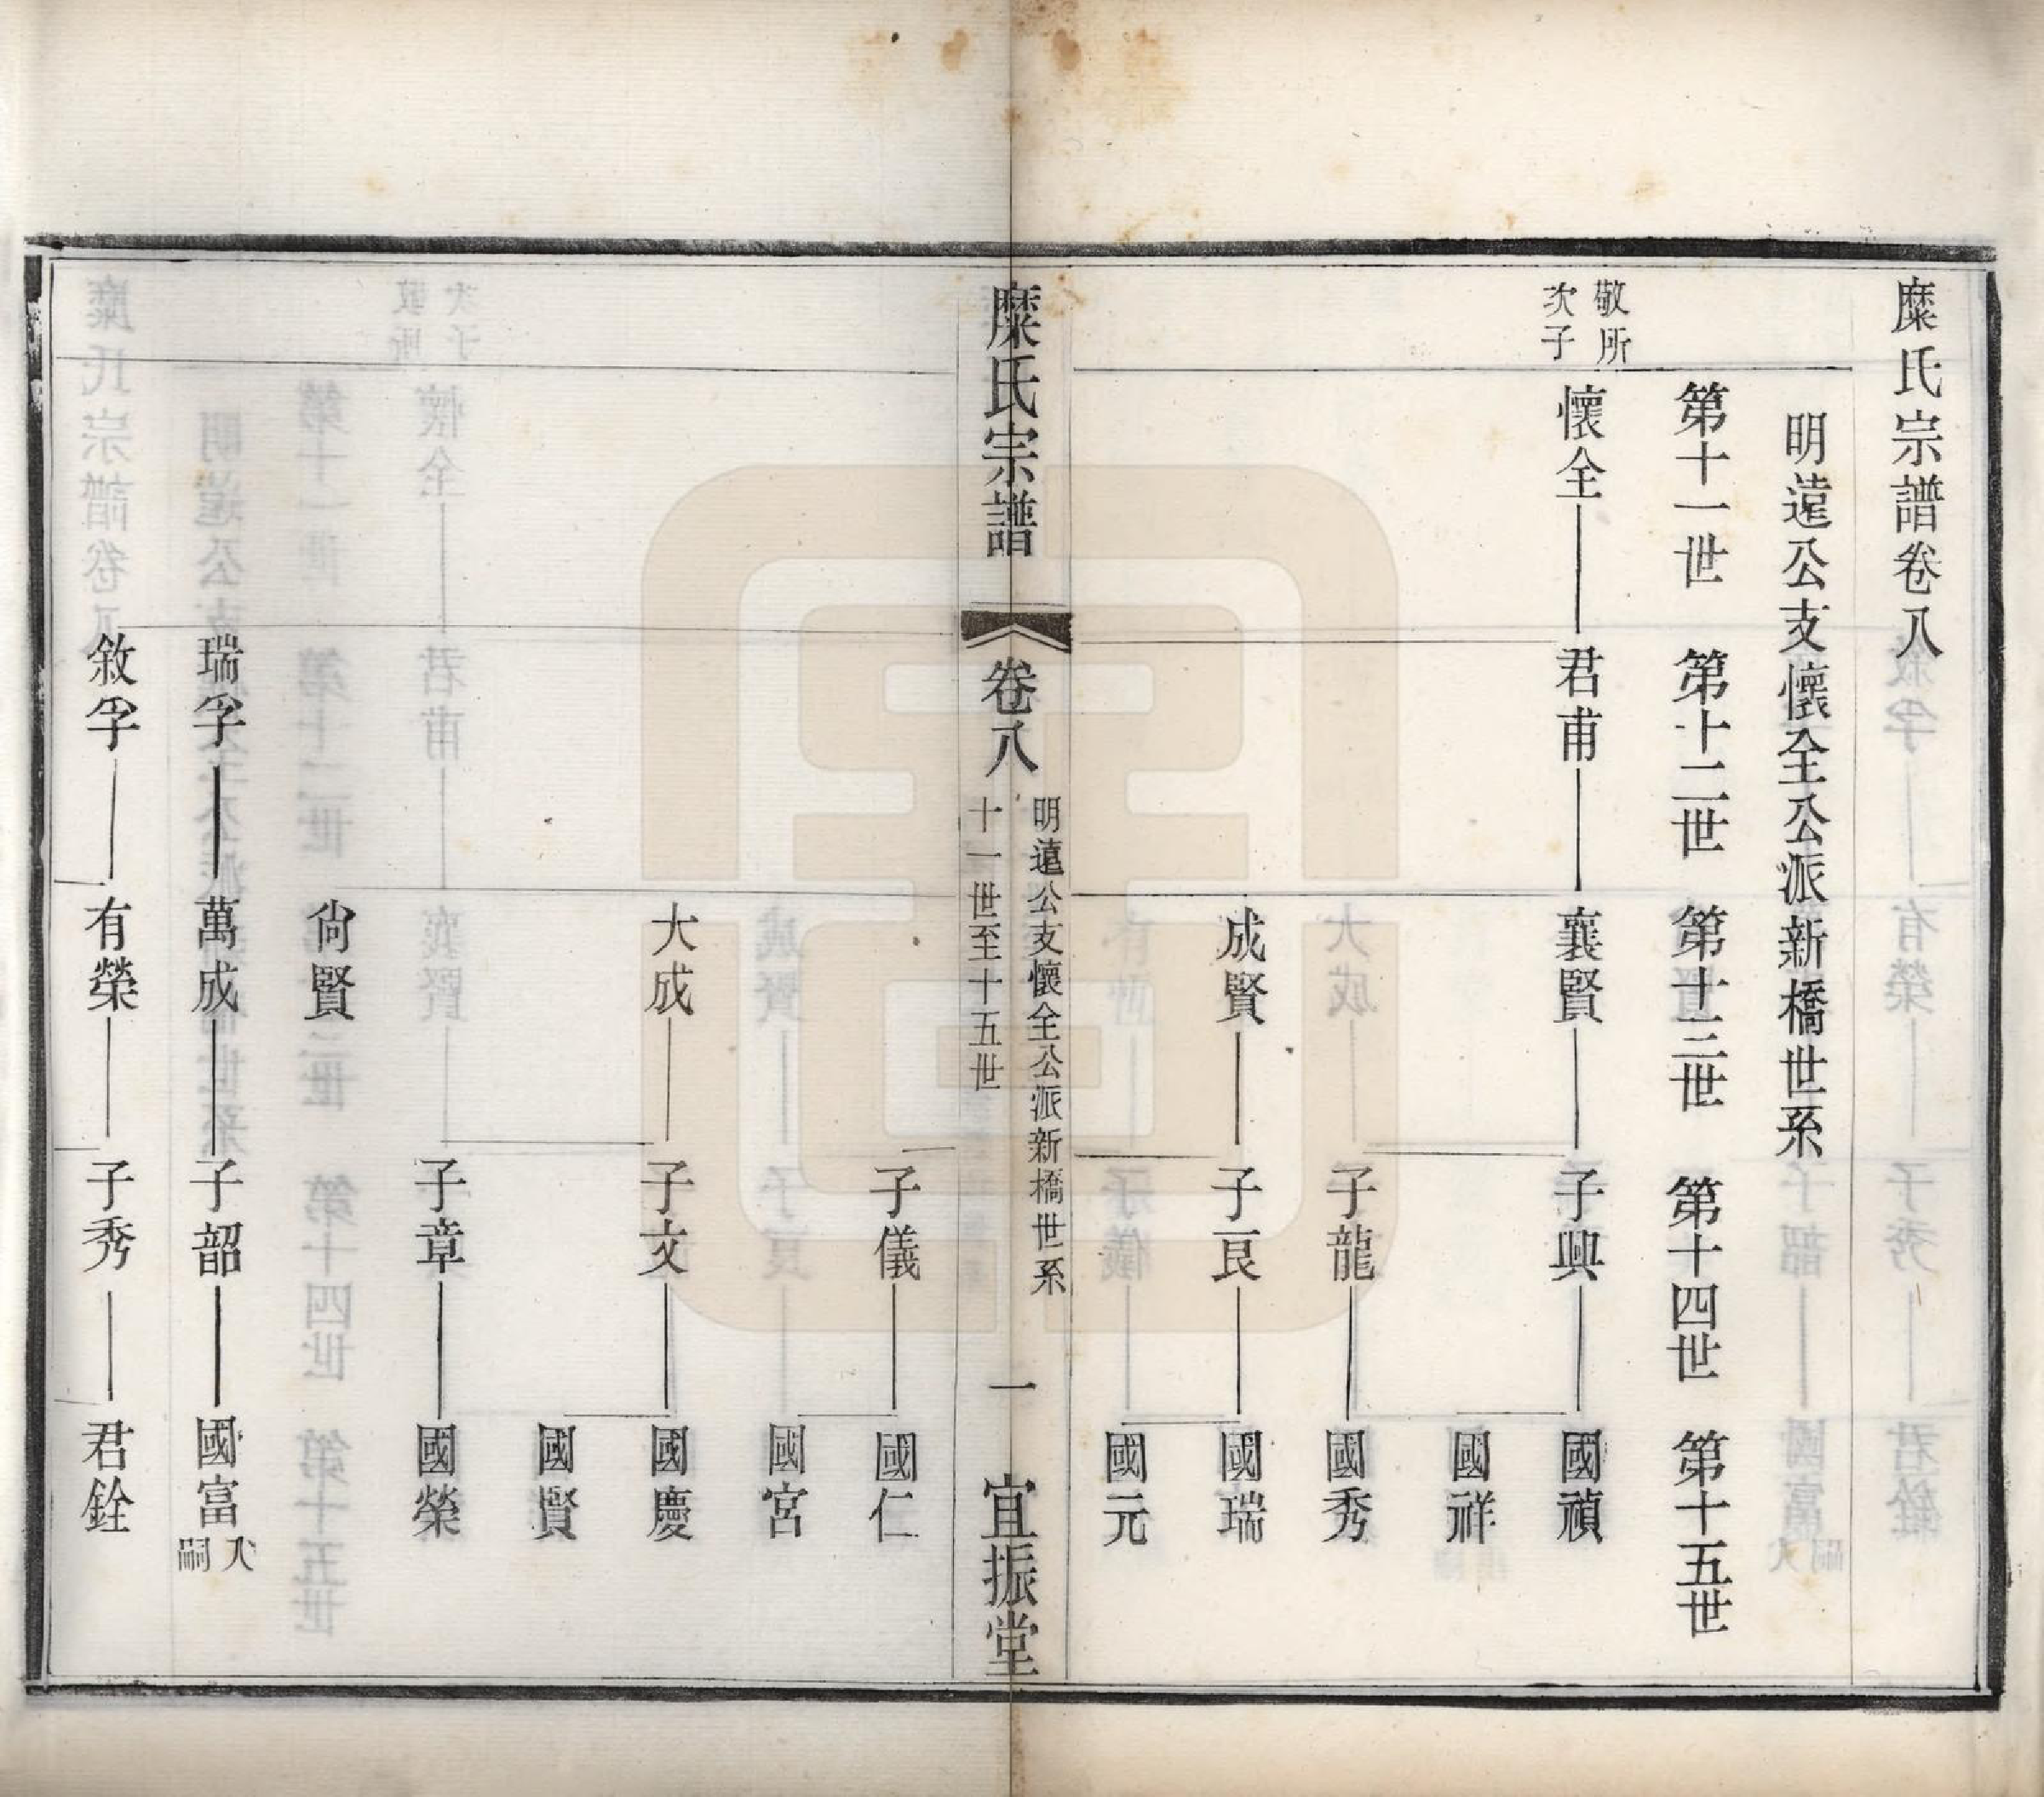 糜氏宗譜卷八
明遠公支懷全公派新橋世系
第十一世 第十二世 第十三世 第十四世 第十五世
敬所
次子
懷全 君甫 襄賢 子興 國禎
國祥
子龍 國秀
成賢 子良 國瑞
國元
糜氏宗譜 卷八
明遠公支懷全公派新橋世系
十一世至十五世
一 宜振堂
子儀 國仁
國宮
大成 子文 國慶
國賢
子章 國榮
尙賢
瑞孚 萬成 子韶 國富
入
嗣
敘孚 有榮 子秀 君銓